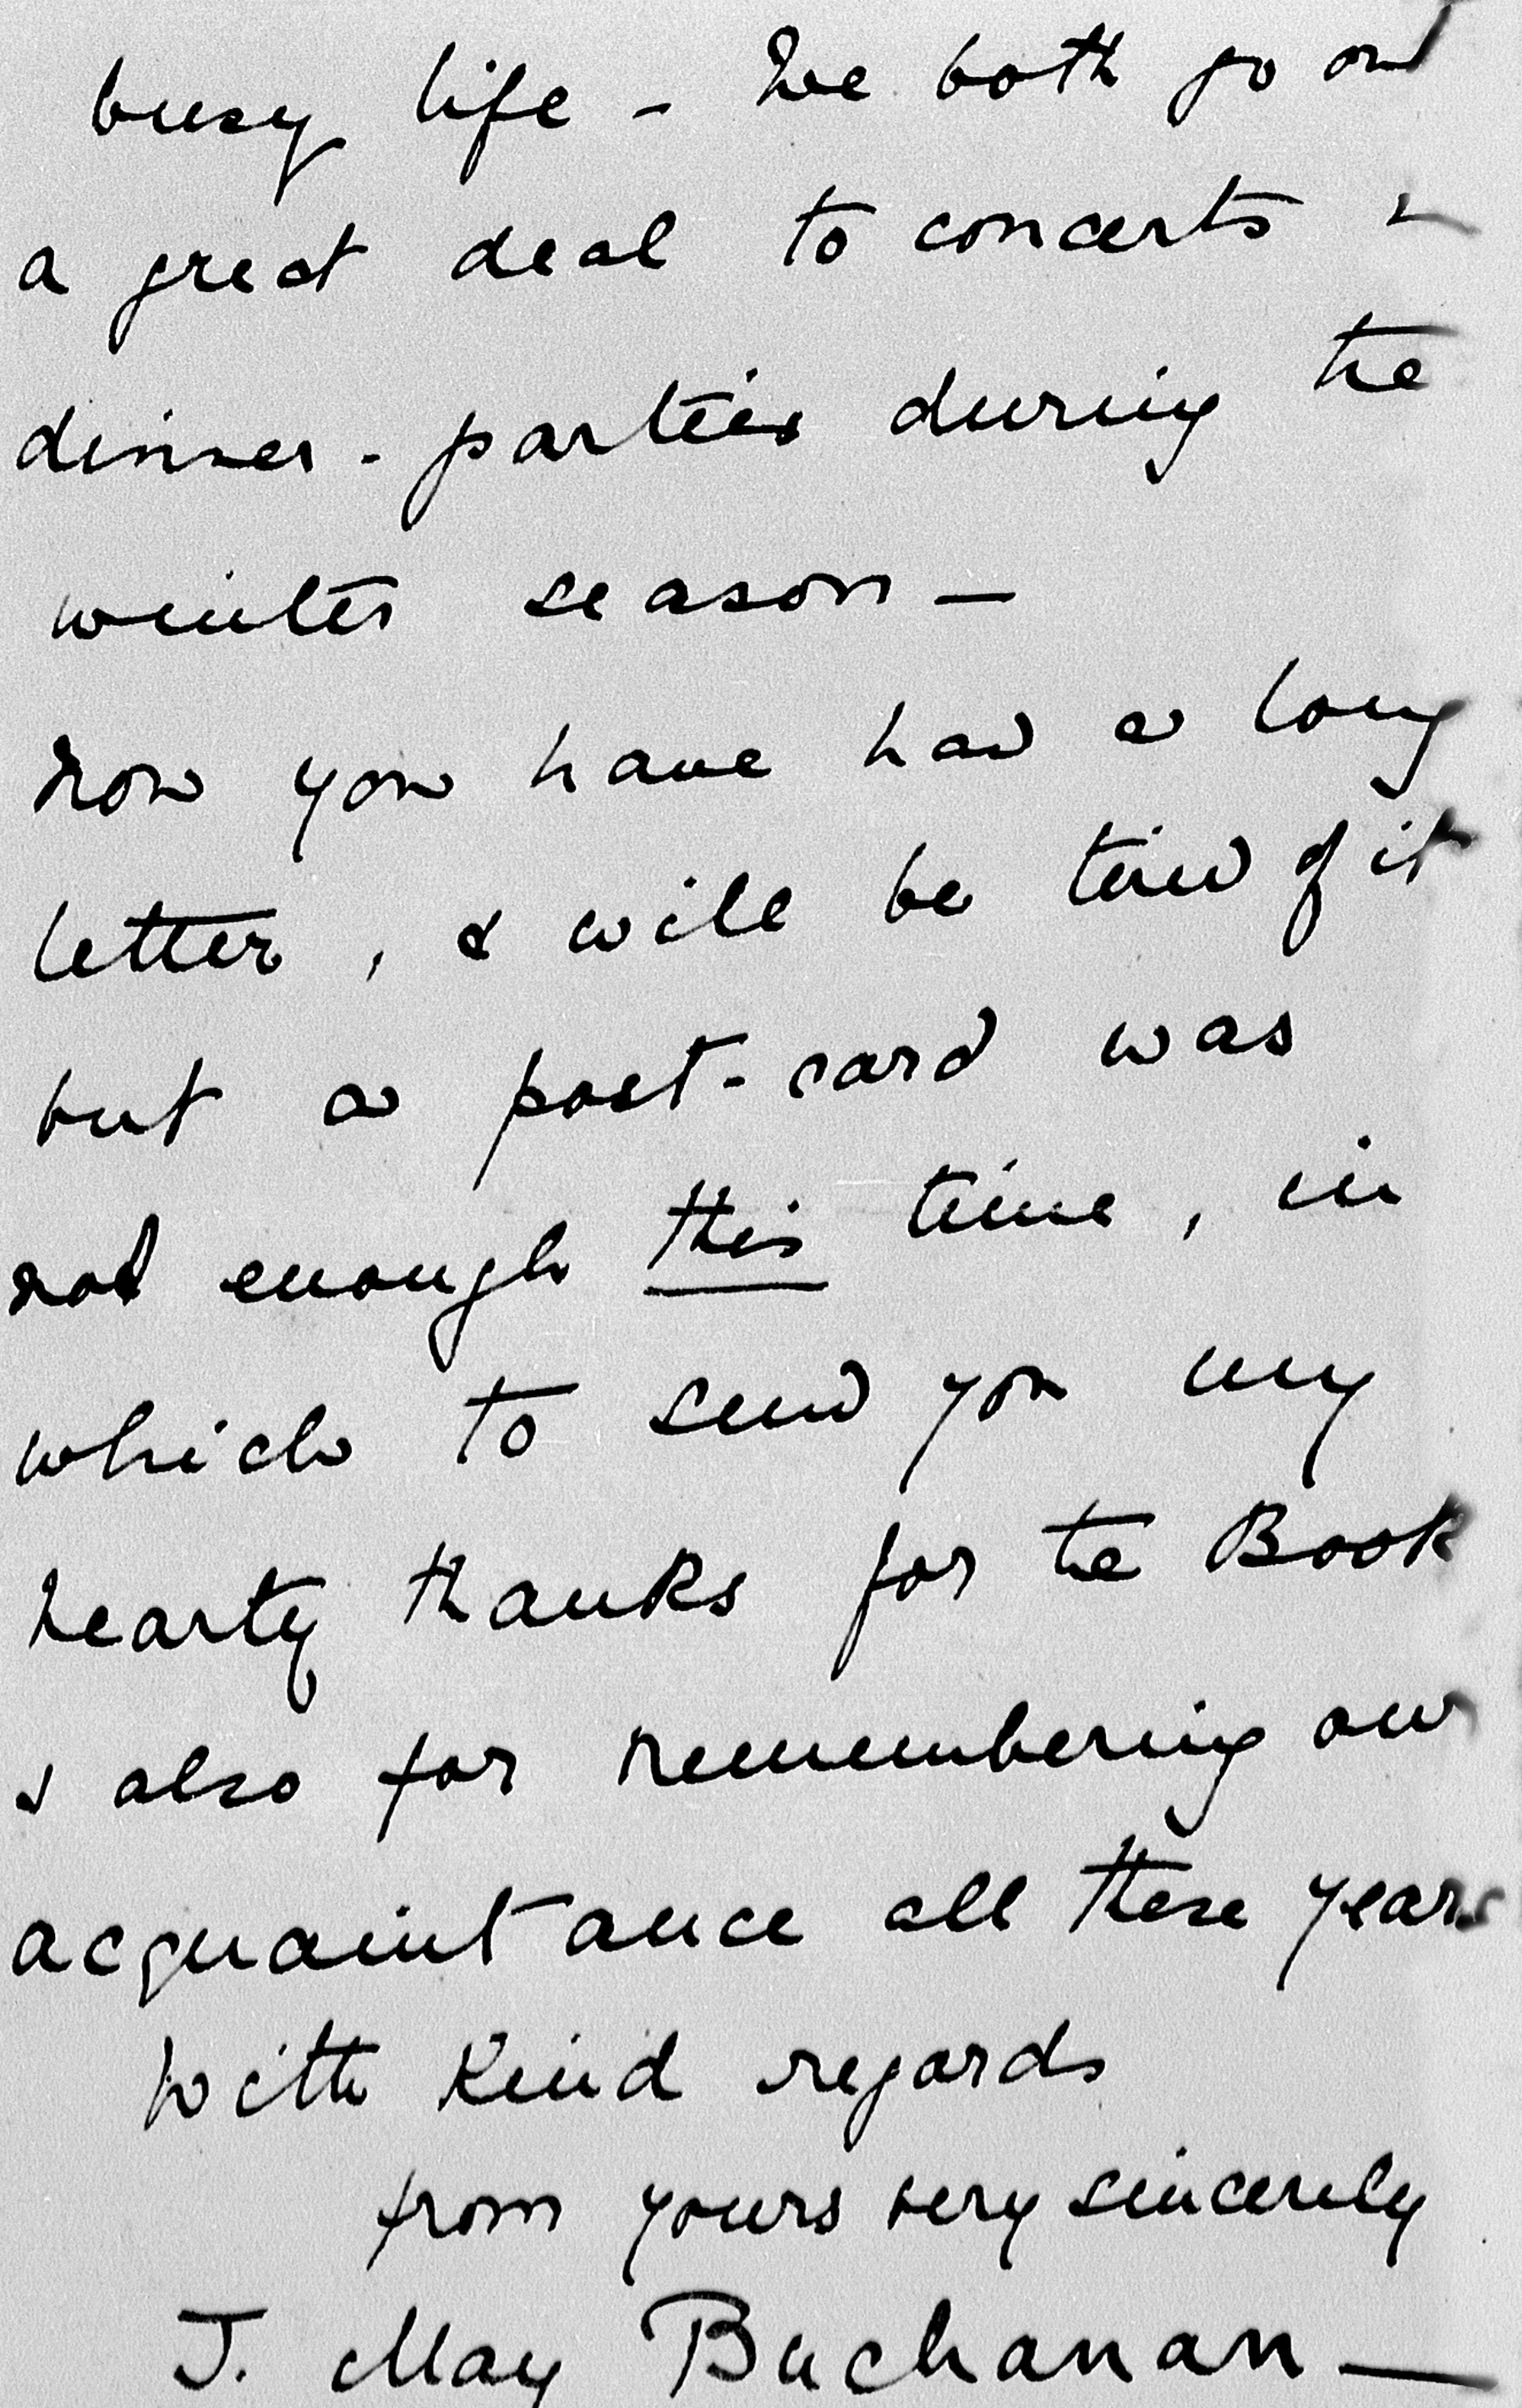 busy life - We both go out
a great deal to concerts &
dinner-parties during the
winter season —
Now you have had a long
letter, & will be tired of it
but a post-card was
not enough this time, in
which to send you my
hearty thanks for the Book
& also for remembering our
acquaintance all these years
With kind regards
from yours very sincerely
J. May Buchanan —